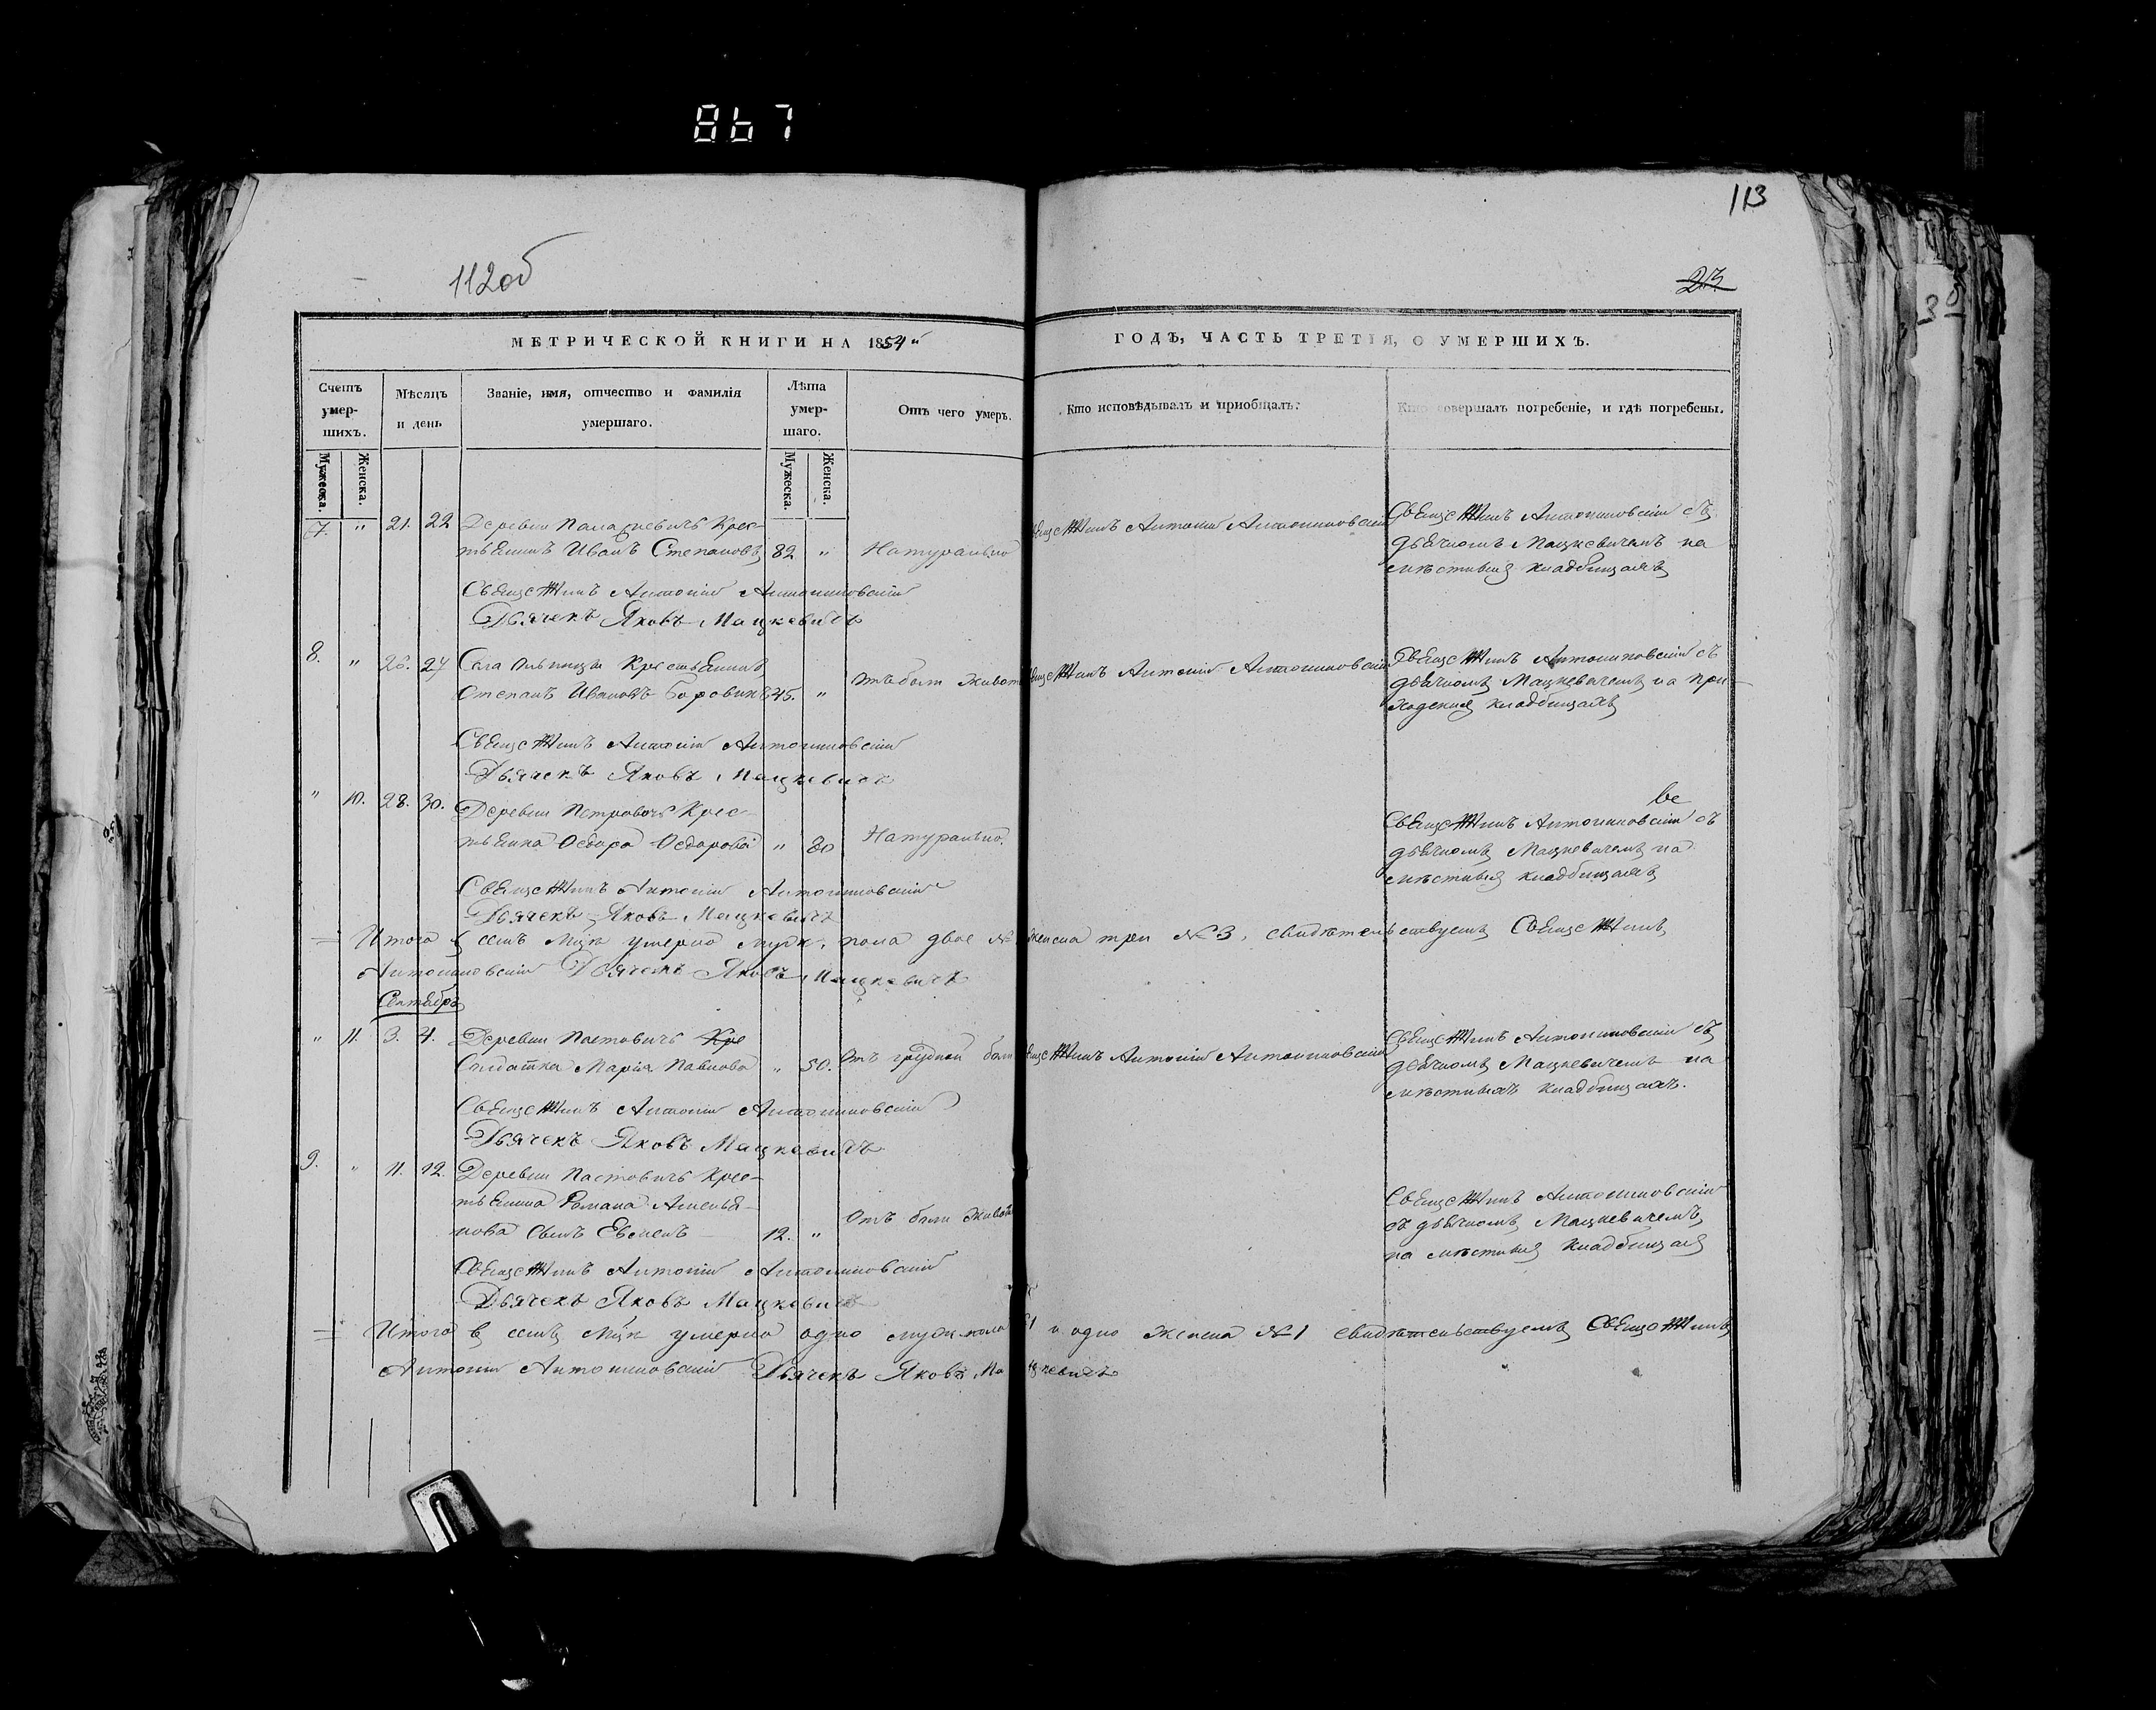 867
113
112об
23
МЕТРИЧЕСКОЙ КНИГИ НА 1854"
ГОДЪ, ЧАСТЬ ТРЕТІЯ, О УМЕРШИХЪ.
Счетъ умершихъ.
Мужеска.
Женска.
Мѣсяцъ и день
Званіе, имя, отчество и фамилія умершаго.
Лѣта умершаго.
Мужеска.
Женска.
Отъ чего умеръ.
Кто исповѣдывалъ и пріобщалъ.
Кто совершалъ погребеніе, и гдѣ погребены.
7. " 21. 22 Деревни Крес-
тьянинъ Иванъ Степановъ 82 " Натурально
Священникъ Антоній Антониновскій
Священникъ Антониновскій съ
дьячкомъ Мацкевичемъ на
мѣстныхъ кладбищахъ
Священникъ Антоній Антониновскій
Дьячекъ Яковъ Мацкевичъ
8. " 26. 27 Села Крестьянинъ
Степанъ Ивановъ Боровик 45. "
Священникъ Антоній Антониновскій
Священникъ Антониновскій съ
дьячкомъ Мацкевичемъ на при-
ходскихъ кладбищахъ
Священникъ Антоній Антониновскій
Дьячекъ Яковъ Мацкевичъ
" 10. 28. 30. Деревни Петровичъ Крес-
тьянка Ѳедора Ѳедорова " 80 Натурально.
Священникъ Антониновскій съ
дьячкомъ Мацкевичемъ на
мѣстныхъ кладбищахъ
Священникъ Антоній Антониновскій
Дьячекъ Яковъ Мацкевичъ
Итого в семъ Мцѣ умерло муж. пола двое № женска три № 3, свидѣтельствуемъ Священникъ
Антониновскій Дьячекъ Яковъ Мацкевичъ
Сентябрь
" 11. 3. 4. Деревни Пастовичъ Кре
Солдатка Марія Павлова " 50. Отъ грудной бол
Священникъ Антоній Антониновскій
Священникъ Антониновскій съ
дьячкомъ Мацкевичемъ на
мѣстныхъ кладбищахъ.
Священникъ Антоній Антониновскій
Дьячекъ Яковъ Мацкевичъ
9. " 11. 12. Деревни Пастовичъ Крес-
тьянина Романа Амелья-
нова сынъ Евмень 12. " Отъ боли живота
Священникъ Антониновскій
съ дьячкомъ Мацкевичемъ
на мѣстныхъ кладбищахъ
Священникъ Антоній Антониновскій
Дьячекъ Яковъ Мацкевичъ
Итого в семъ Мцѣ умерло одно муж. пола 1 и одно женска № 1 свидѣтельствуемъ Священникъ
Антоній Антониновскій Дьячекъ Яковъ Мацкевичъ